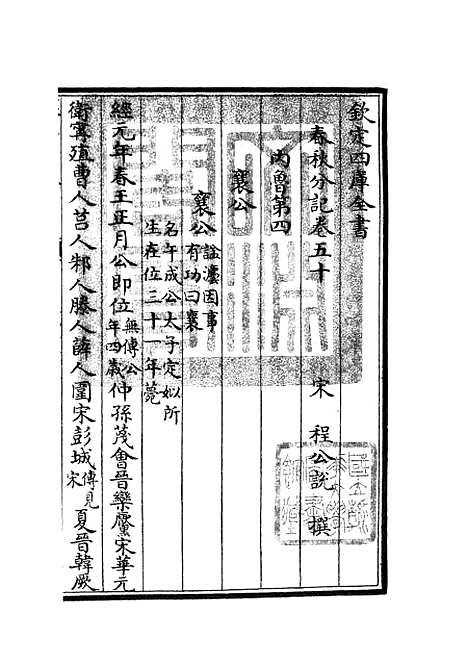 欽定四庫全書
春秋分記卷五十
宋 程公說 撰
內魯第四
襄公
襄公諡灋因事有功曰襄
名午成公太子定姒所
生在位三十一年薨
經元年春王正月公即位無傳公年四歲仲孫蔑會晉欒黶宋華元
衛甯殖曹人莒人邾人滕人薛人圍宋彭城傳見宋夏晉韓厥